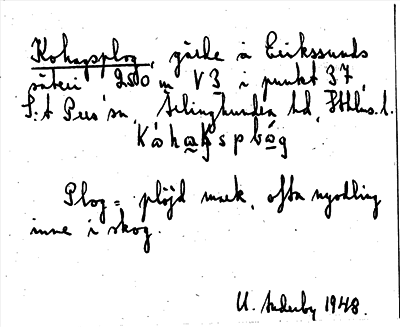 Kohagsplog, gärde å Erikssunds
säteri 2500 m V 3 i punkt 37,
S:t Pers sn, Ärlinghundra hd, Sthlms l.
Kåhagsplåg
Plog = plöjd mark, ofta nyodling
inne i skog.
U. Söderby 1948.